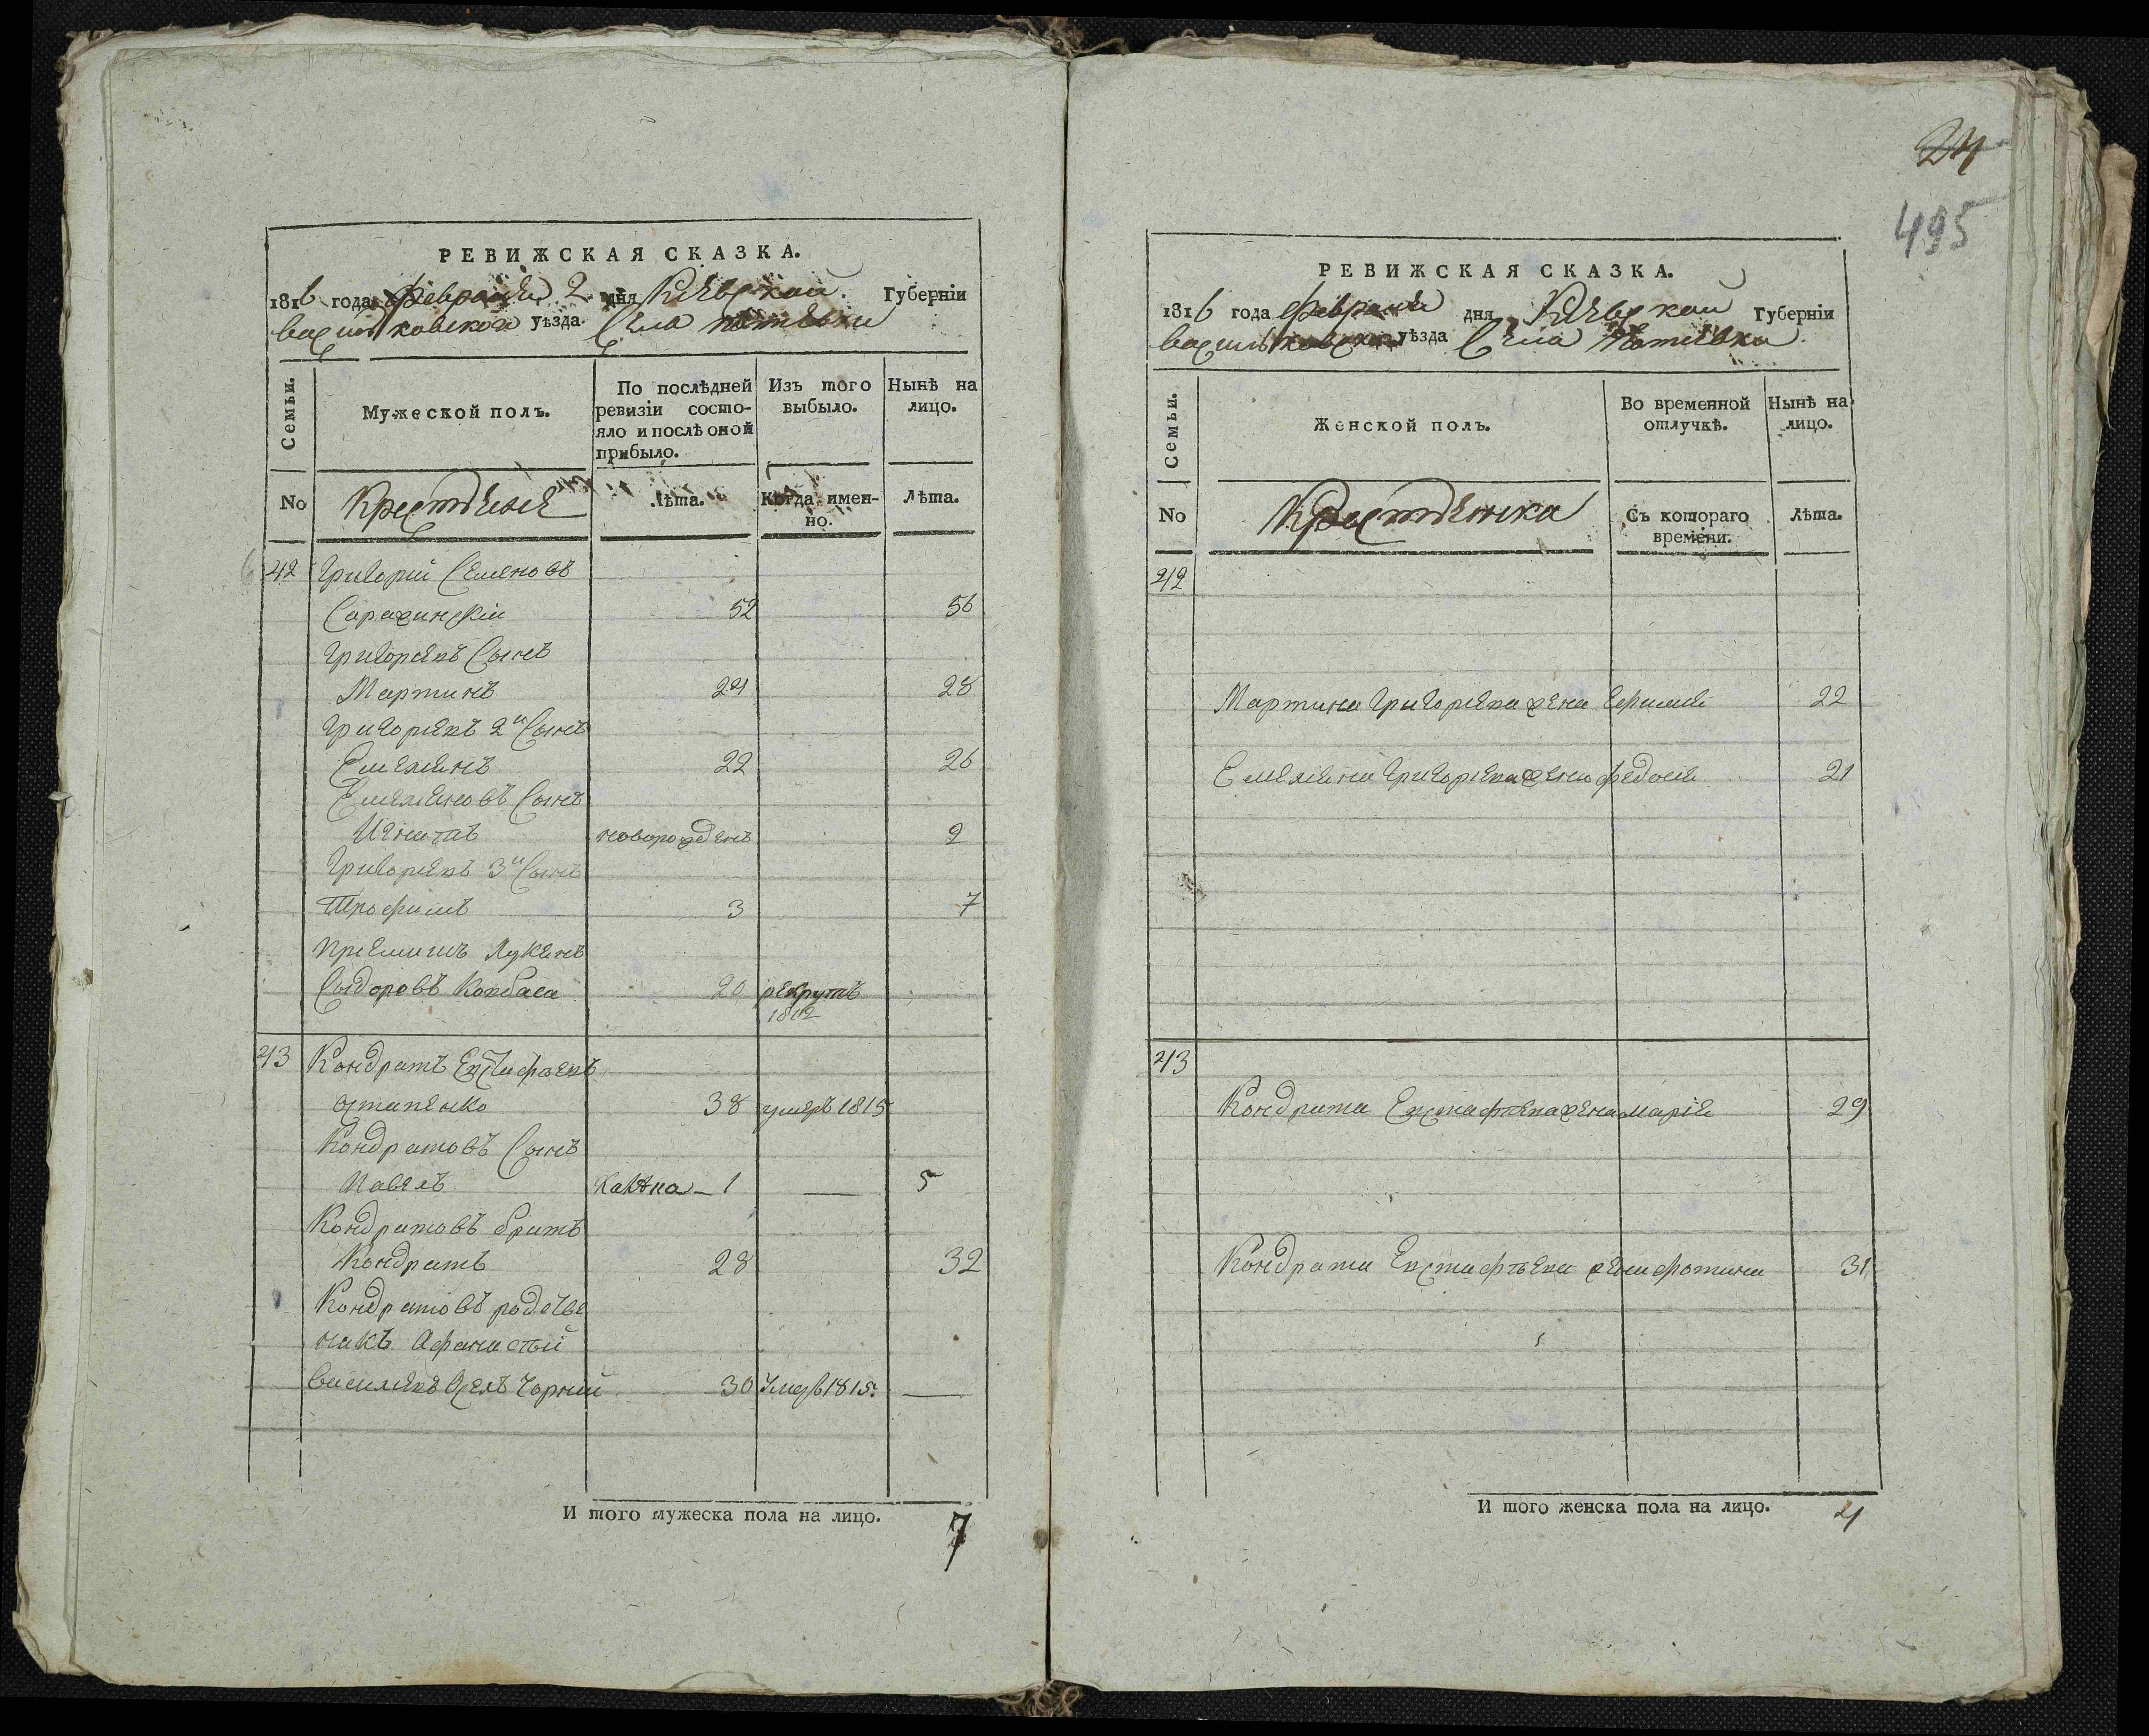 РЕВИЖСКАЯ СКАЗКА.
1816 года февраля 2 дня Кіевской Губерніи
васильковской уѣзда. Села
Семьи.
Мужеской полъ.
По послѣдней ревизіи состо-
яло и послѣ оной прибыло.
Изъ того выбыло.
Нынѣ на лицо.
No
Крестьяне
лѣта.
Когда имен-
но.
Лѣта.
42 Григорій Семеновъ
52 56
Григорьевъ Сынъ
Мартинъ 24 28
Григорьевъ 2й Сынъ
Емельянъ 22 26
Емельяновъ Сынъ
новорожденъ 2
Григорьевъ 3й Сынъ
Трофимъ 3 7
Сыдоровъ Ковбаса 20 рекрутъ
1812
43 Кондратъ
Остапенко 38 умеръ 1815
Кондратовъ Сынъ
Павелъ 1 — 5
Кондратовъ братъ
Кондратъ 28 32
Кондратовъ родстве
никъ Афанастій
Чорний 30 умер 1815. —
И того мужеска пола на лицо. 7
24
495
РЕВИЖСКАЯ СКАЗКА.
1816 года февраля дня Кіевской Губерніи
васильковской уѣзда Села
Семьи.
Женской полъ.
Во временной отлучкѣ.
Нынѣ на лицо.
No
Крестьянка
Съ котораго
времени.
Лѣта.
42
Мартина Григорьева жена 22
Емельяна Григорьева жена федосія 21
43
Кондрата жена марія 29
Кондрата жена фотина 31
И того женска пола на лицо. 4